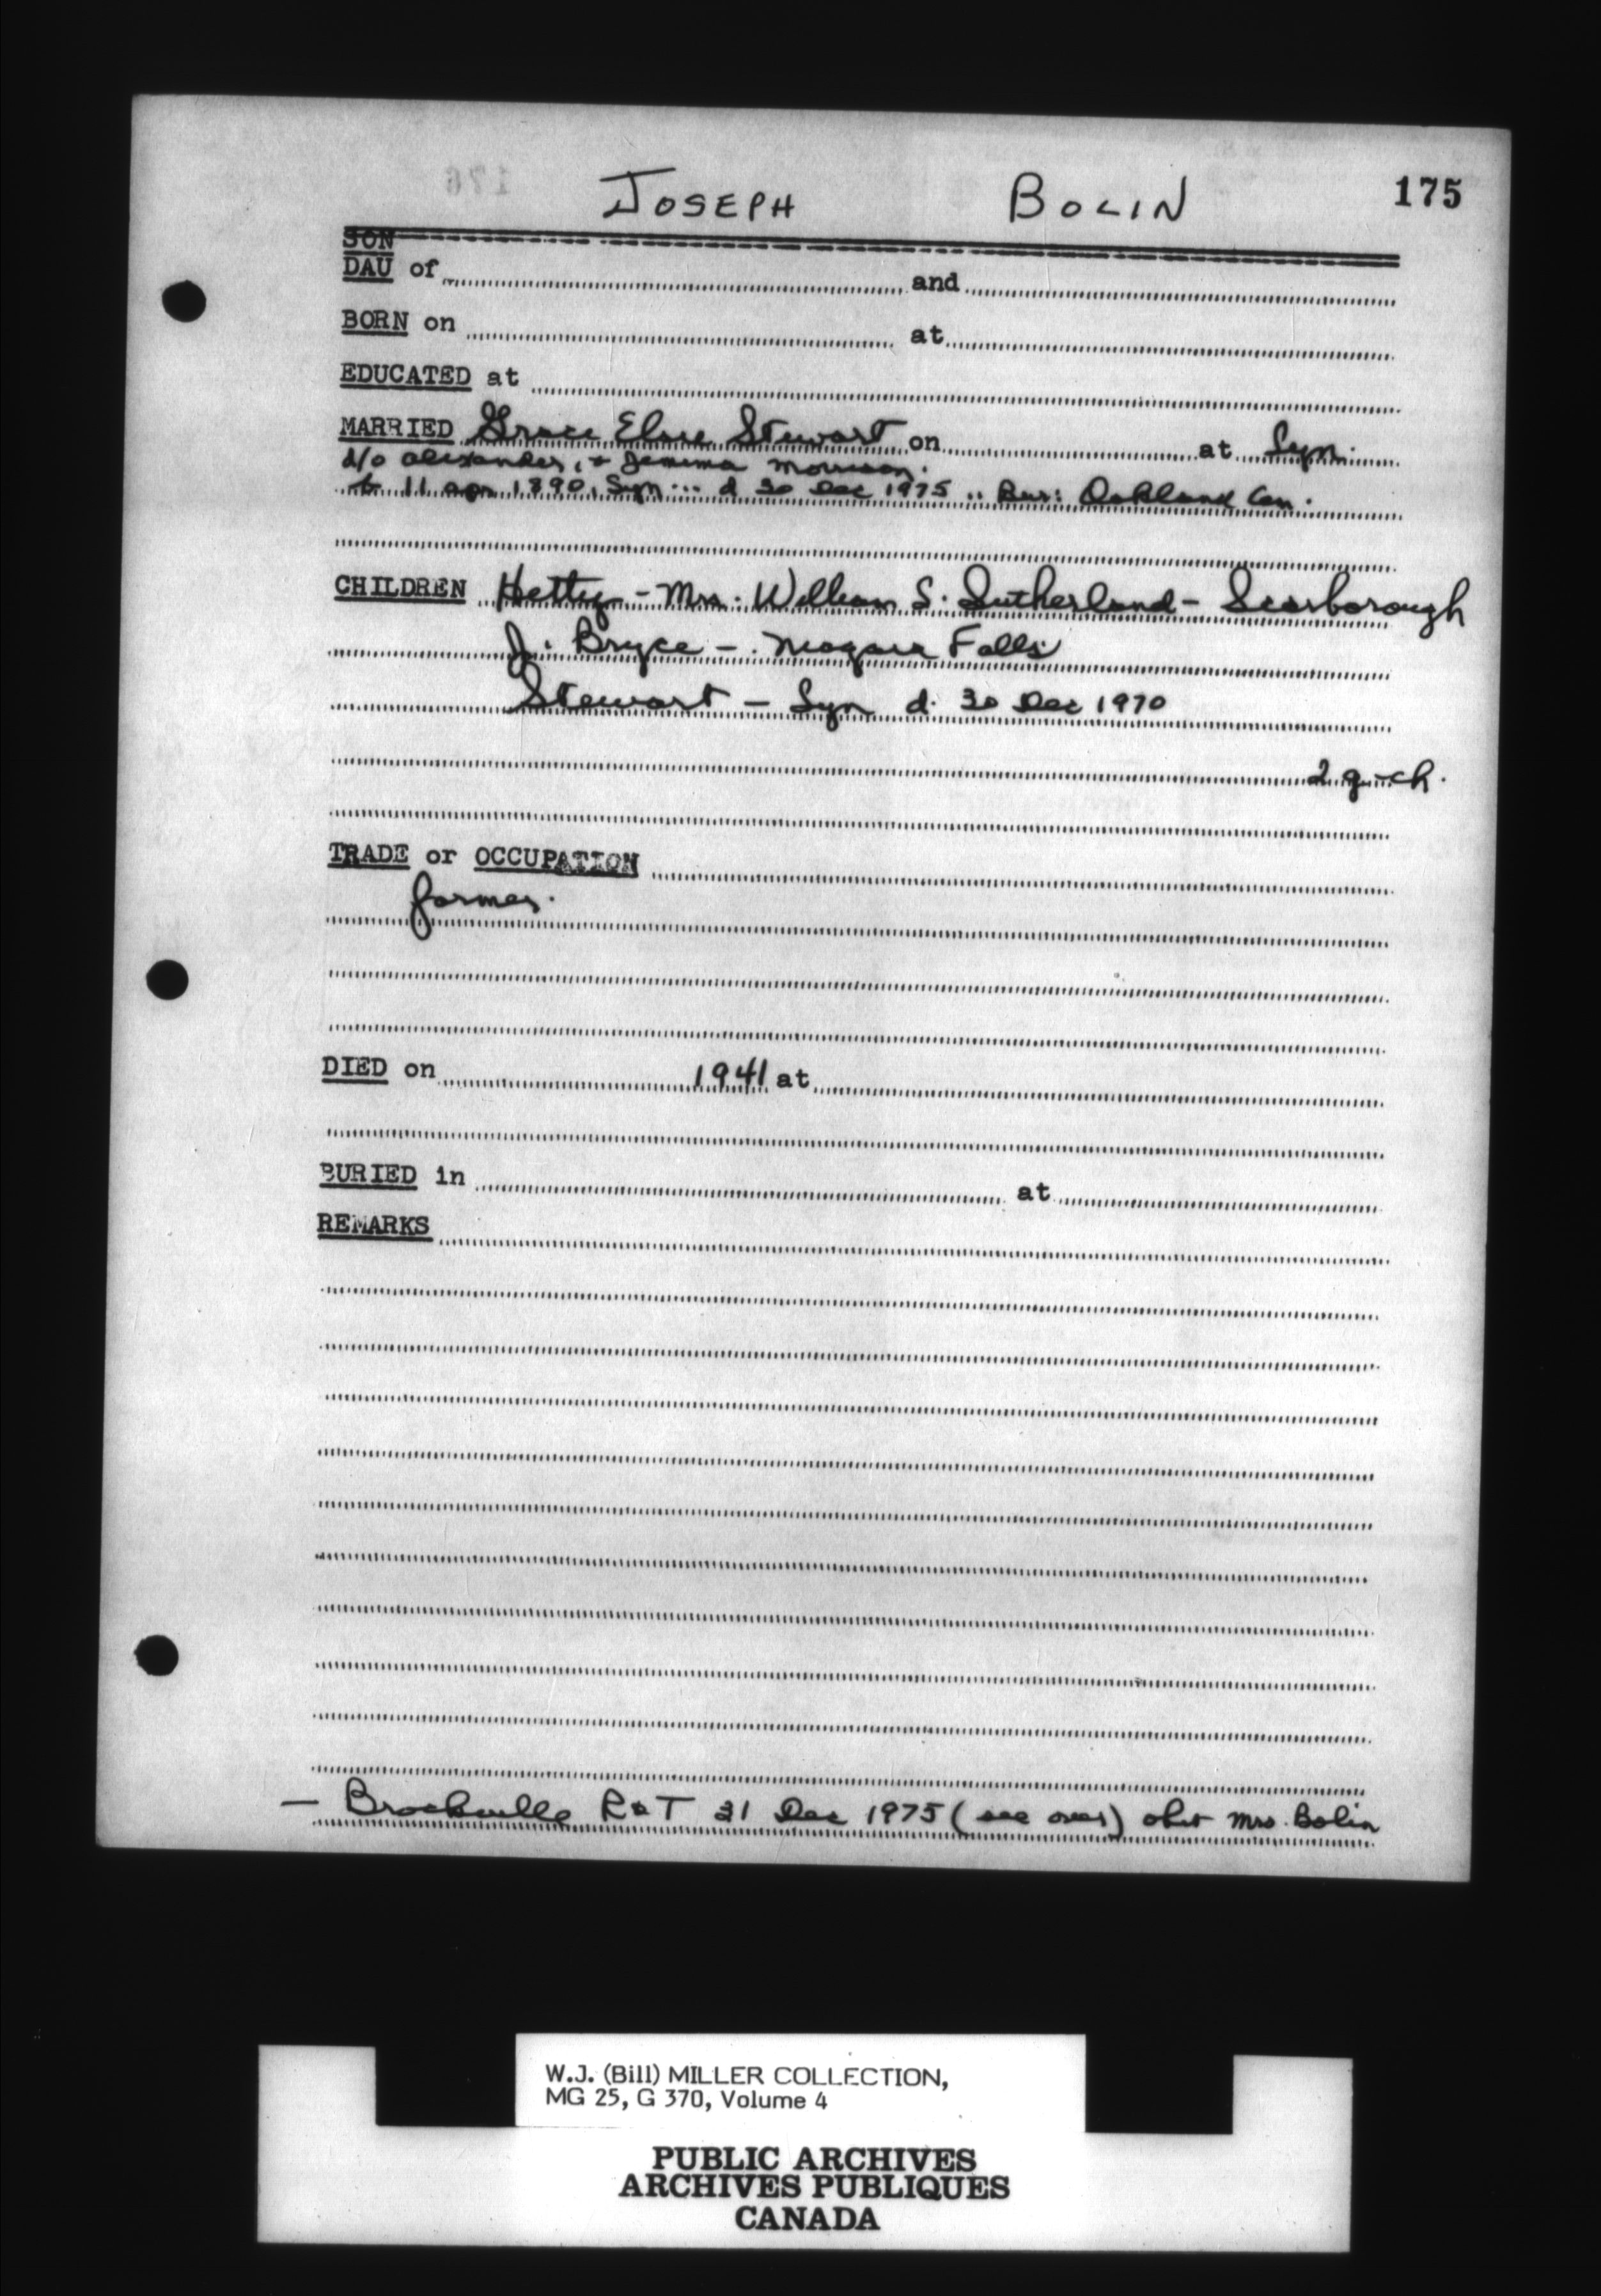 JOSEPH BOLIN 175
SON
DAU of and
BORN on at
EDUCATED at
MARRIED Grace Elsie Stewart on at Lyn.
d/o Alexander, & Jemima Morrison.
b 11 apr 1890, Lyn... d 30 Dec 1975 .. Bur: Oakland Cem.
CHILDREN Hetty - Mrs. William S. Sutherland - Scarborough
J. Bryce - Niagara Falls
Stewart - Lyn d. 30 Dec 1970
2 g-ch.
TRADE or OCCUPATION
farmer.
DIED on 1941 at
BURIED in at
REMARKS
— Brockville R&T 31 Dec 1975 (see over) obit Mrs. Bolin
W.J. (Bill) MILLER COLLECTION,
MG 25, G 370, Volume 4
PUBLIC ARCHIVES
ARCHIVES PUBLIQUES
CANADA